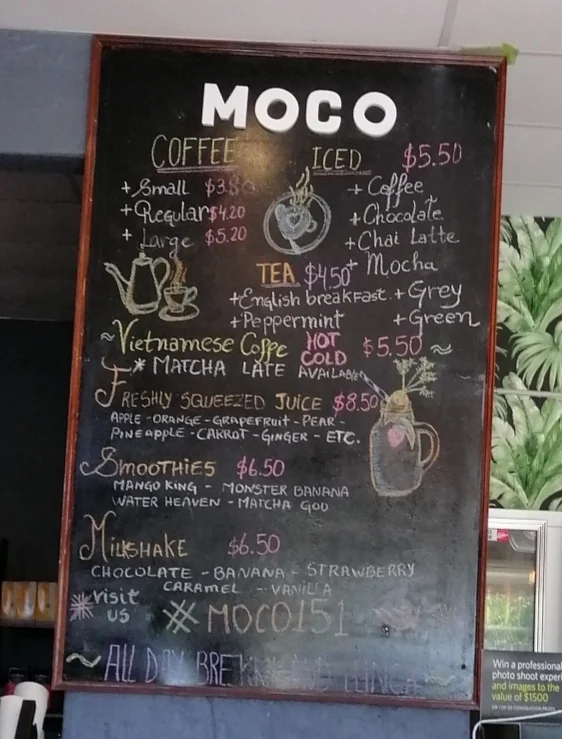 MOCO
COFFEE
+ Small $3.80
+ Regular $4.20
+ Large $5.20
ICED $5.50
+ Coffee
+ Chocolate
+ Chai Latte
+ Mocha
TEA $4.50
+ English breakfast + Grey
+ Peppermint + Green
~ Vietnamese Coffe HOT COLD $5.50 ~
* MATCHA LATE AVAILABLE
FRESHLY SQUEEZED JUICE $8.50
APPLE - ORANGE - GRAPEFRUIT - PEAR -
PINEAPPLE - CARROT - GINGER - ETC.
SMOOTHIES $6.50
MANGO KING - MONSTER BANANA
WATER HEAVEN - MATCHA GOD
MILKSHAKE $6.50
CHOCOLATE - BANANA - STRAWBERRY
CARAMEL - VANILLA
visit
US
# MOCO151
~ ALL DAY BREKKY AND LUNCH ~
Win a professional
photo shoot experi
and images to the
value of $1500